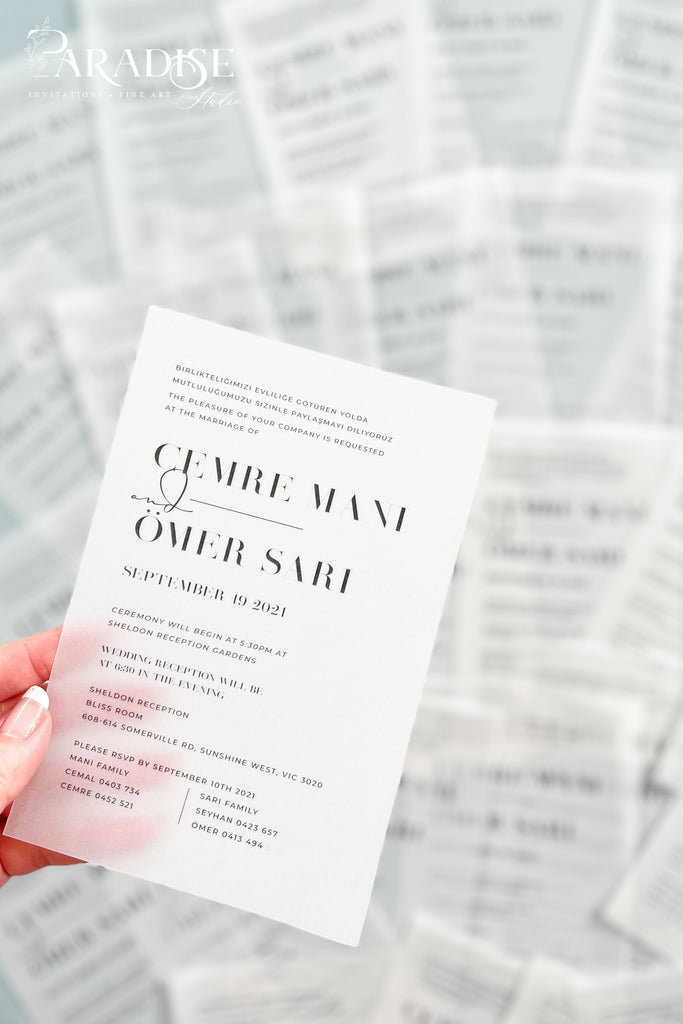 PARADISE
INVITATIONS • FINE ART Studio
BIRLIKTELIĞIMIZI EVLILIĞE GOTUREN YOLDA
MUTLULUĞUMUZU SIZINLE PAYLAŞMAYI DILIYORUZ
THE PLEASURE OF YOUR COMPANY IS REQUESTED
AT THE MARRIAGE OF
CEMRE MANI
and
ÖMER SARI
SEPTEMBER 19 2021
CEREMONY WILL BEGIN AT 5:30PM AT
SHELDON RECEPTION GARDENS
WEDDING RECEPTION WILL BE
AT 6:30 IN THE EVENING
SHELDON RECEPTION
BLISS ROOM
608-614 SOMERVILLE RD, SUNSHINE WEST, VIC 3020
PLEASE RSVP BY SEPTEMBER 10TH 2021
MANI FAMILY
CEMAL 0403 734
CEMRE 0452 521
SARI FAMILY
SEYHAN 0423 657
OMER 0413 494